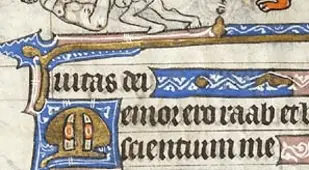 iuitas dei
Memor ero raab et b
scientium me